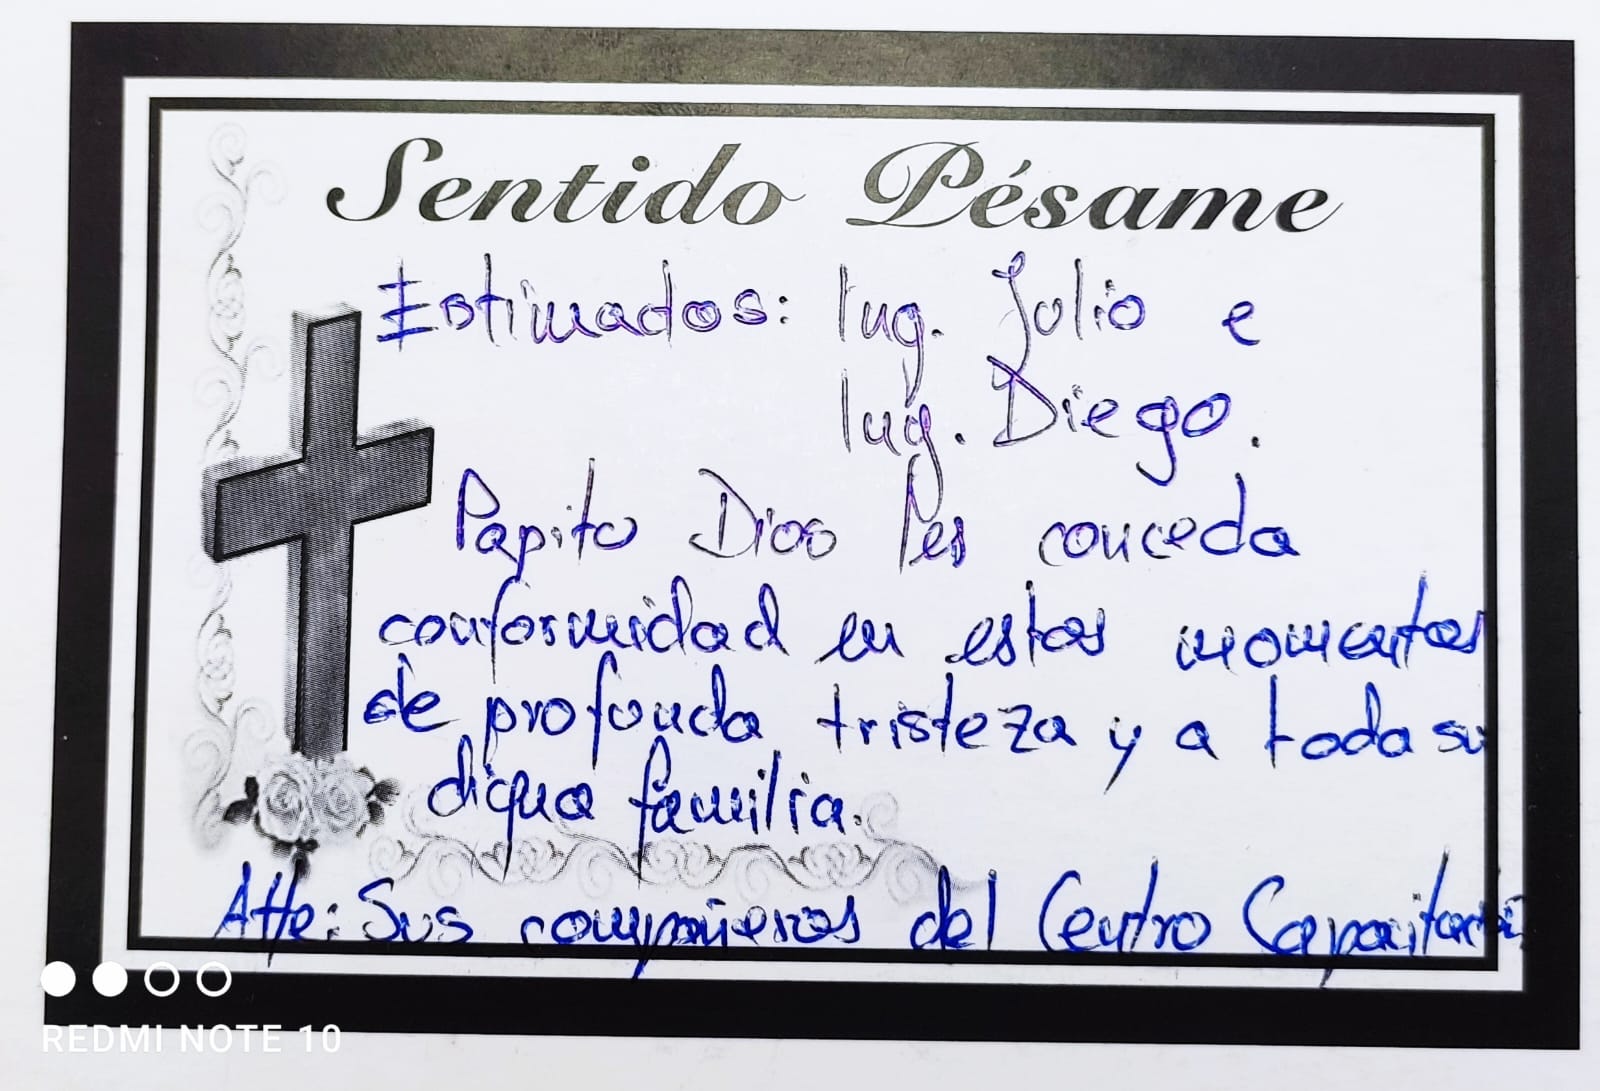 Sentido Pésame
Estimados: Ing. Julio e
Ing. Diego.
Papito Dios les conceda
conformidad en estos momentos
de profunda tristeza y a toda su
digna familia.
Atte: Sus compañeros del Centro Capacitación
REDMI NOTE 10